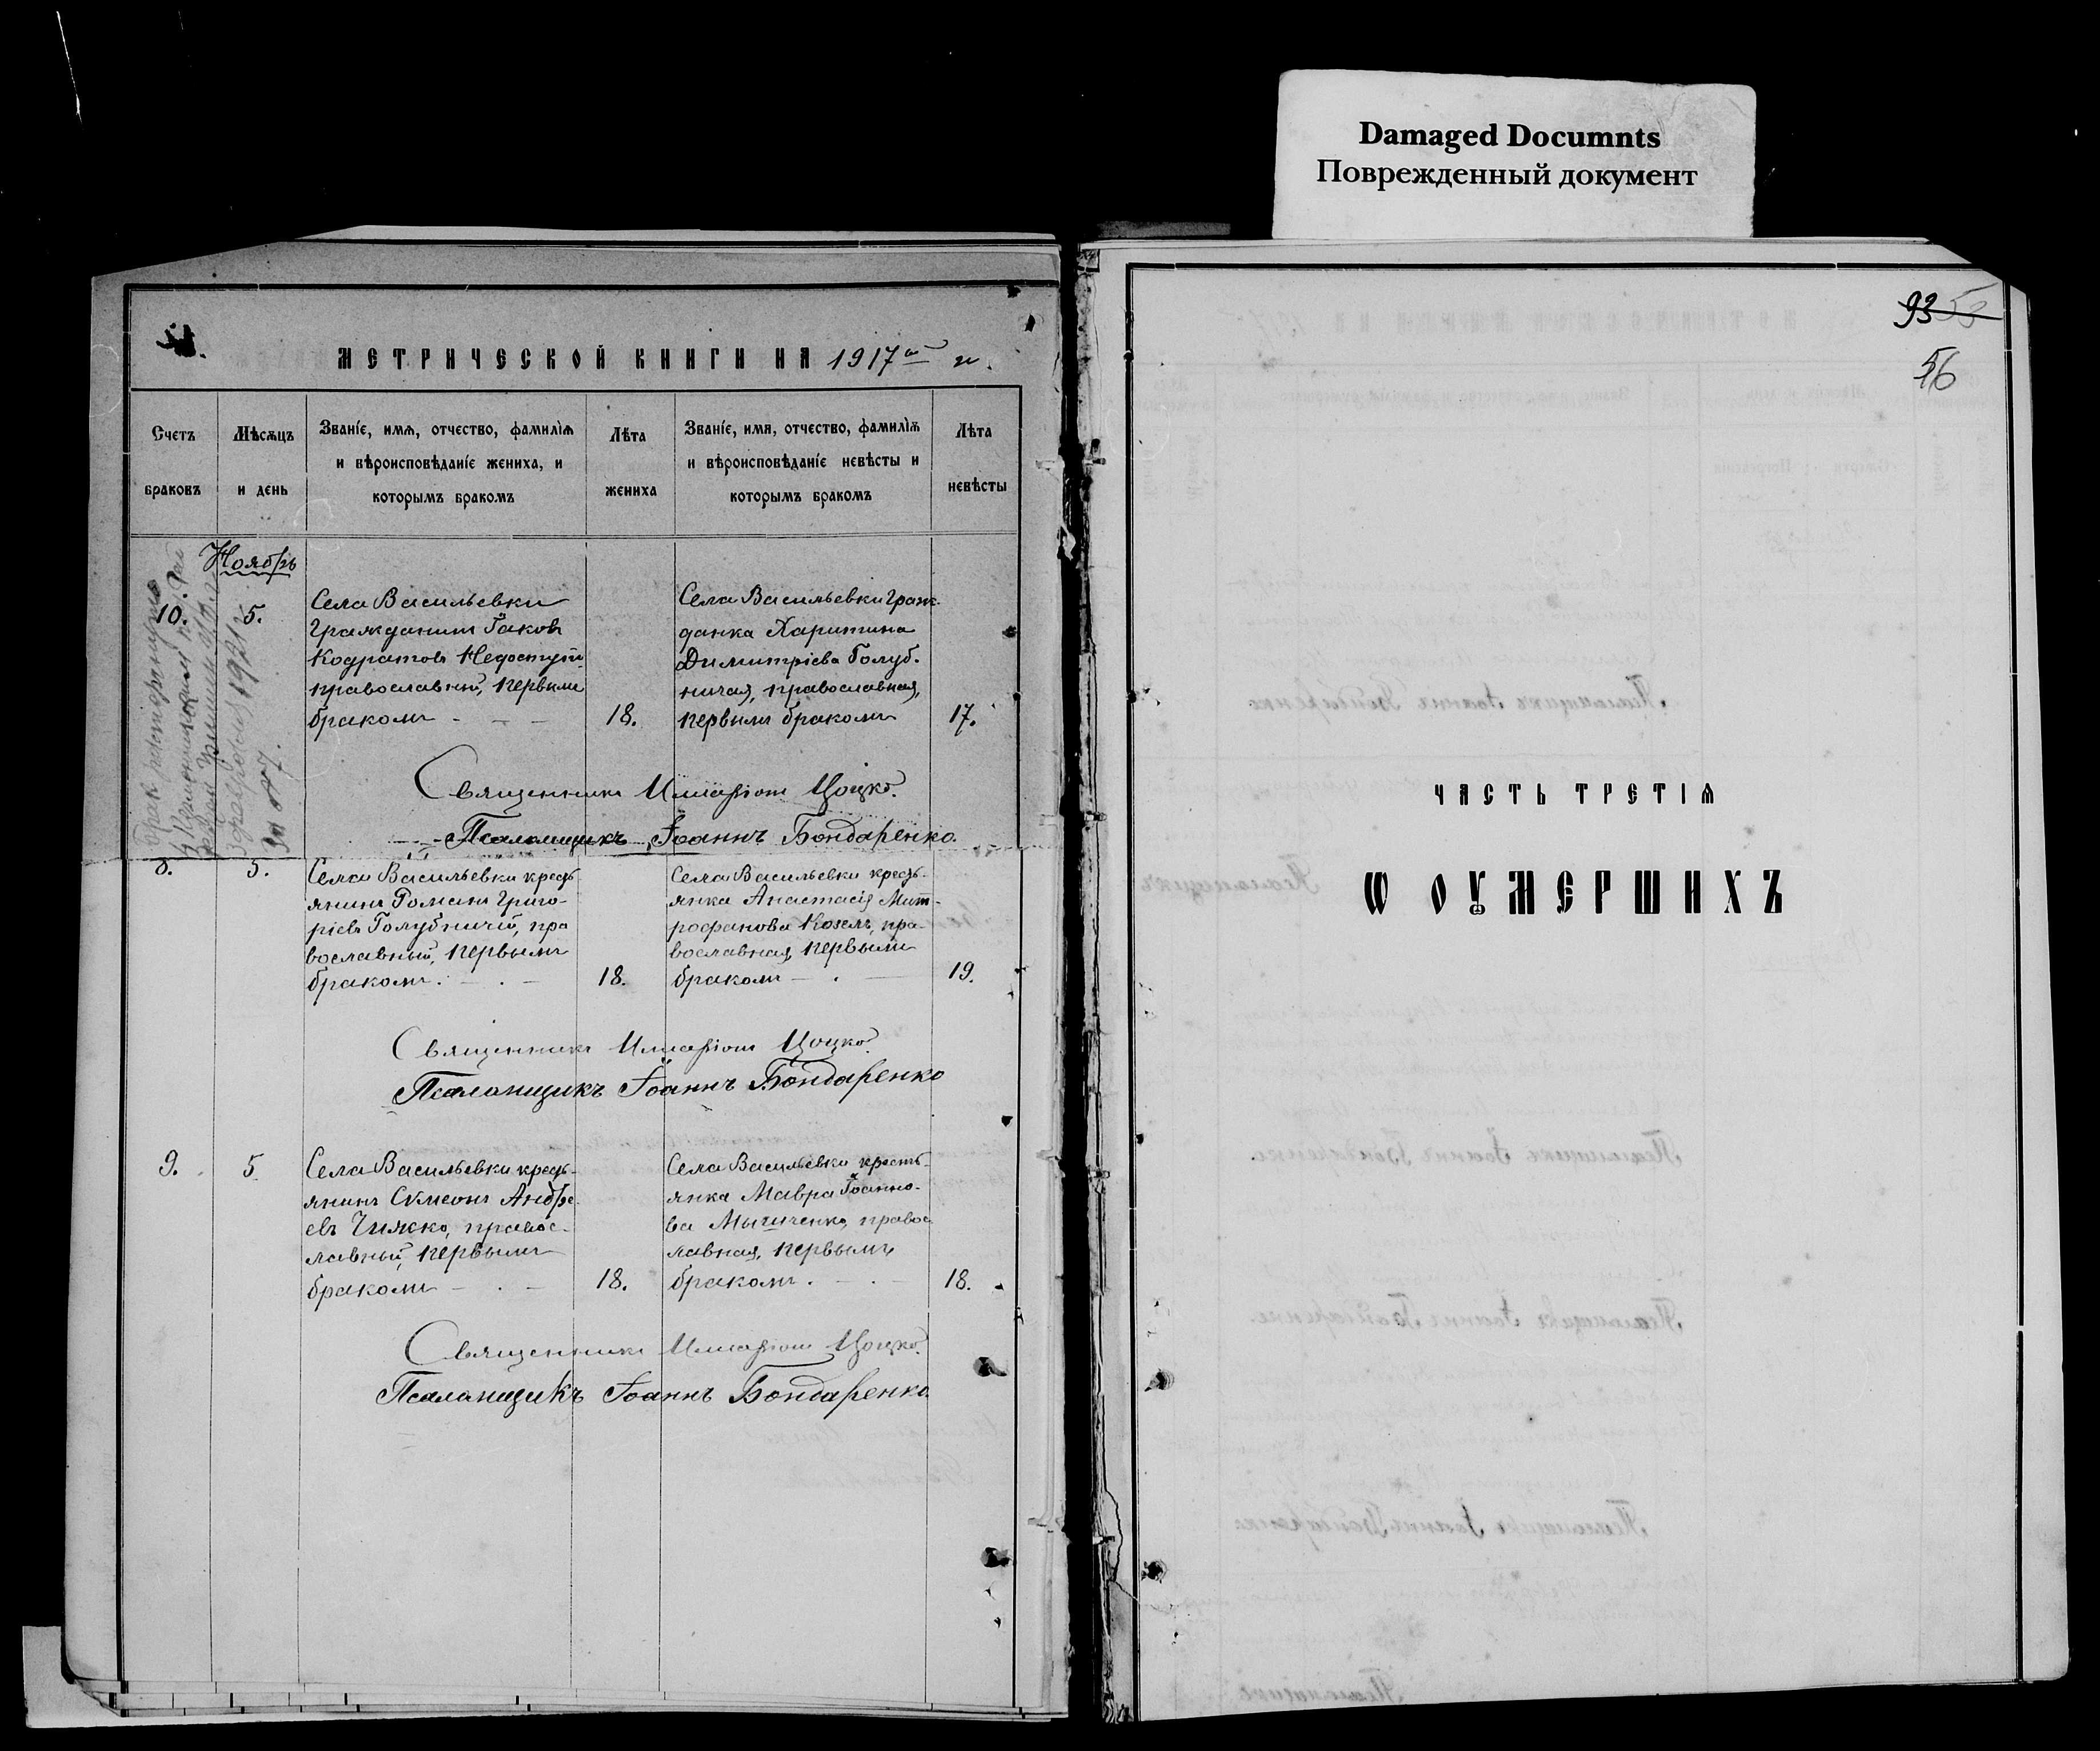 Damaged Documnts
Поврежденный документ
МЕТРИЧЕСКОЙ КНИГИ НА 1917 й г.
Счетъ браковъ
Мѣсяцъ и день
Званіе, имя, отчество, фамилія и вѣроисповѣданіе жениха, и которымъ бракомъ
Лѣта жениха
Званіе, имя, отчество, фамилія и вѣроисповѣданіе невѣсты и которымъ бракомъ
Лѣта невѣсты
Ноябрь
10.
5.
Села Васильевки
гражданинъ Іаковъ
Кодратовъ Недоступъ
православный, первымъ
бракомъ - - -
18.
Села Васильевки граж-
данка Харитина
Димитріева Голуб-
ничая, православная,
первымъ бракомъ
17.
Священникъ Иларіонъ Цоцко.
Псаломщикъ Іоаннъ Бондаренко.
8.
5.
Села Васильевки кресть-
янинъ Романъ Григо-
ріевъ Голубничій, пра
вославный, первымъ
бракомъ. - . -
18.
Села Васильевки кресть-
янка Анастасія Мит-
рофанова Козелъ, пра-
вославная, первымъ
бракомъ - . -
19.
Священникъ Иларіонъ Цоцко.
Псаломщикъ Іоаннъ Бондаренко
9.
5
Села Васильевки кресть-
янинъ Симеонъ Андре-
евъ Чижко, правос-
лавный, первымъ
бракомъ - . -
18.
Села Васильевки кресть-
янка Мавра Іоанно-
ва, правос
лавная, первымъ
бракомъ. - . -
18.
Священникъ Иларіонъ Цоцко.
Псаломщикъ Іоаннъ Бондаренко.
93 53
56
ЧАСТЬ ТРЕТІЯ
Ѡ ОУМЕРШИХЪ